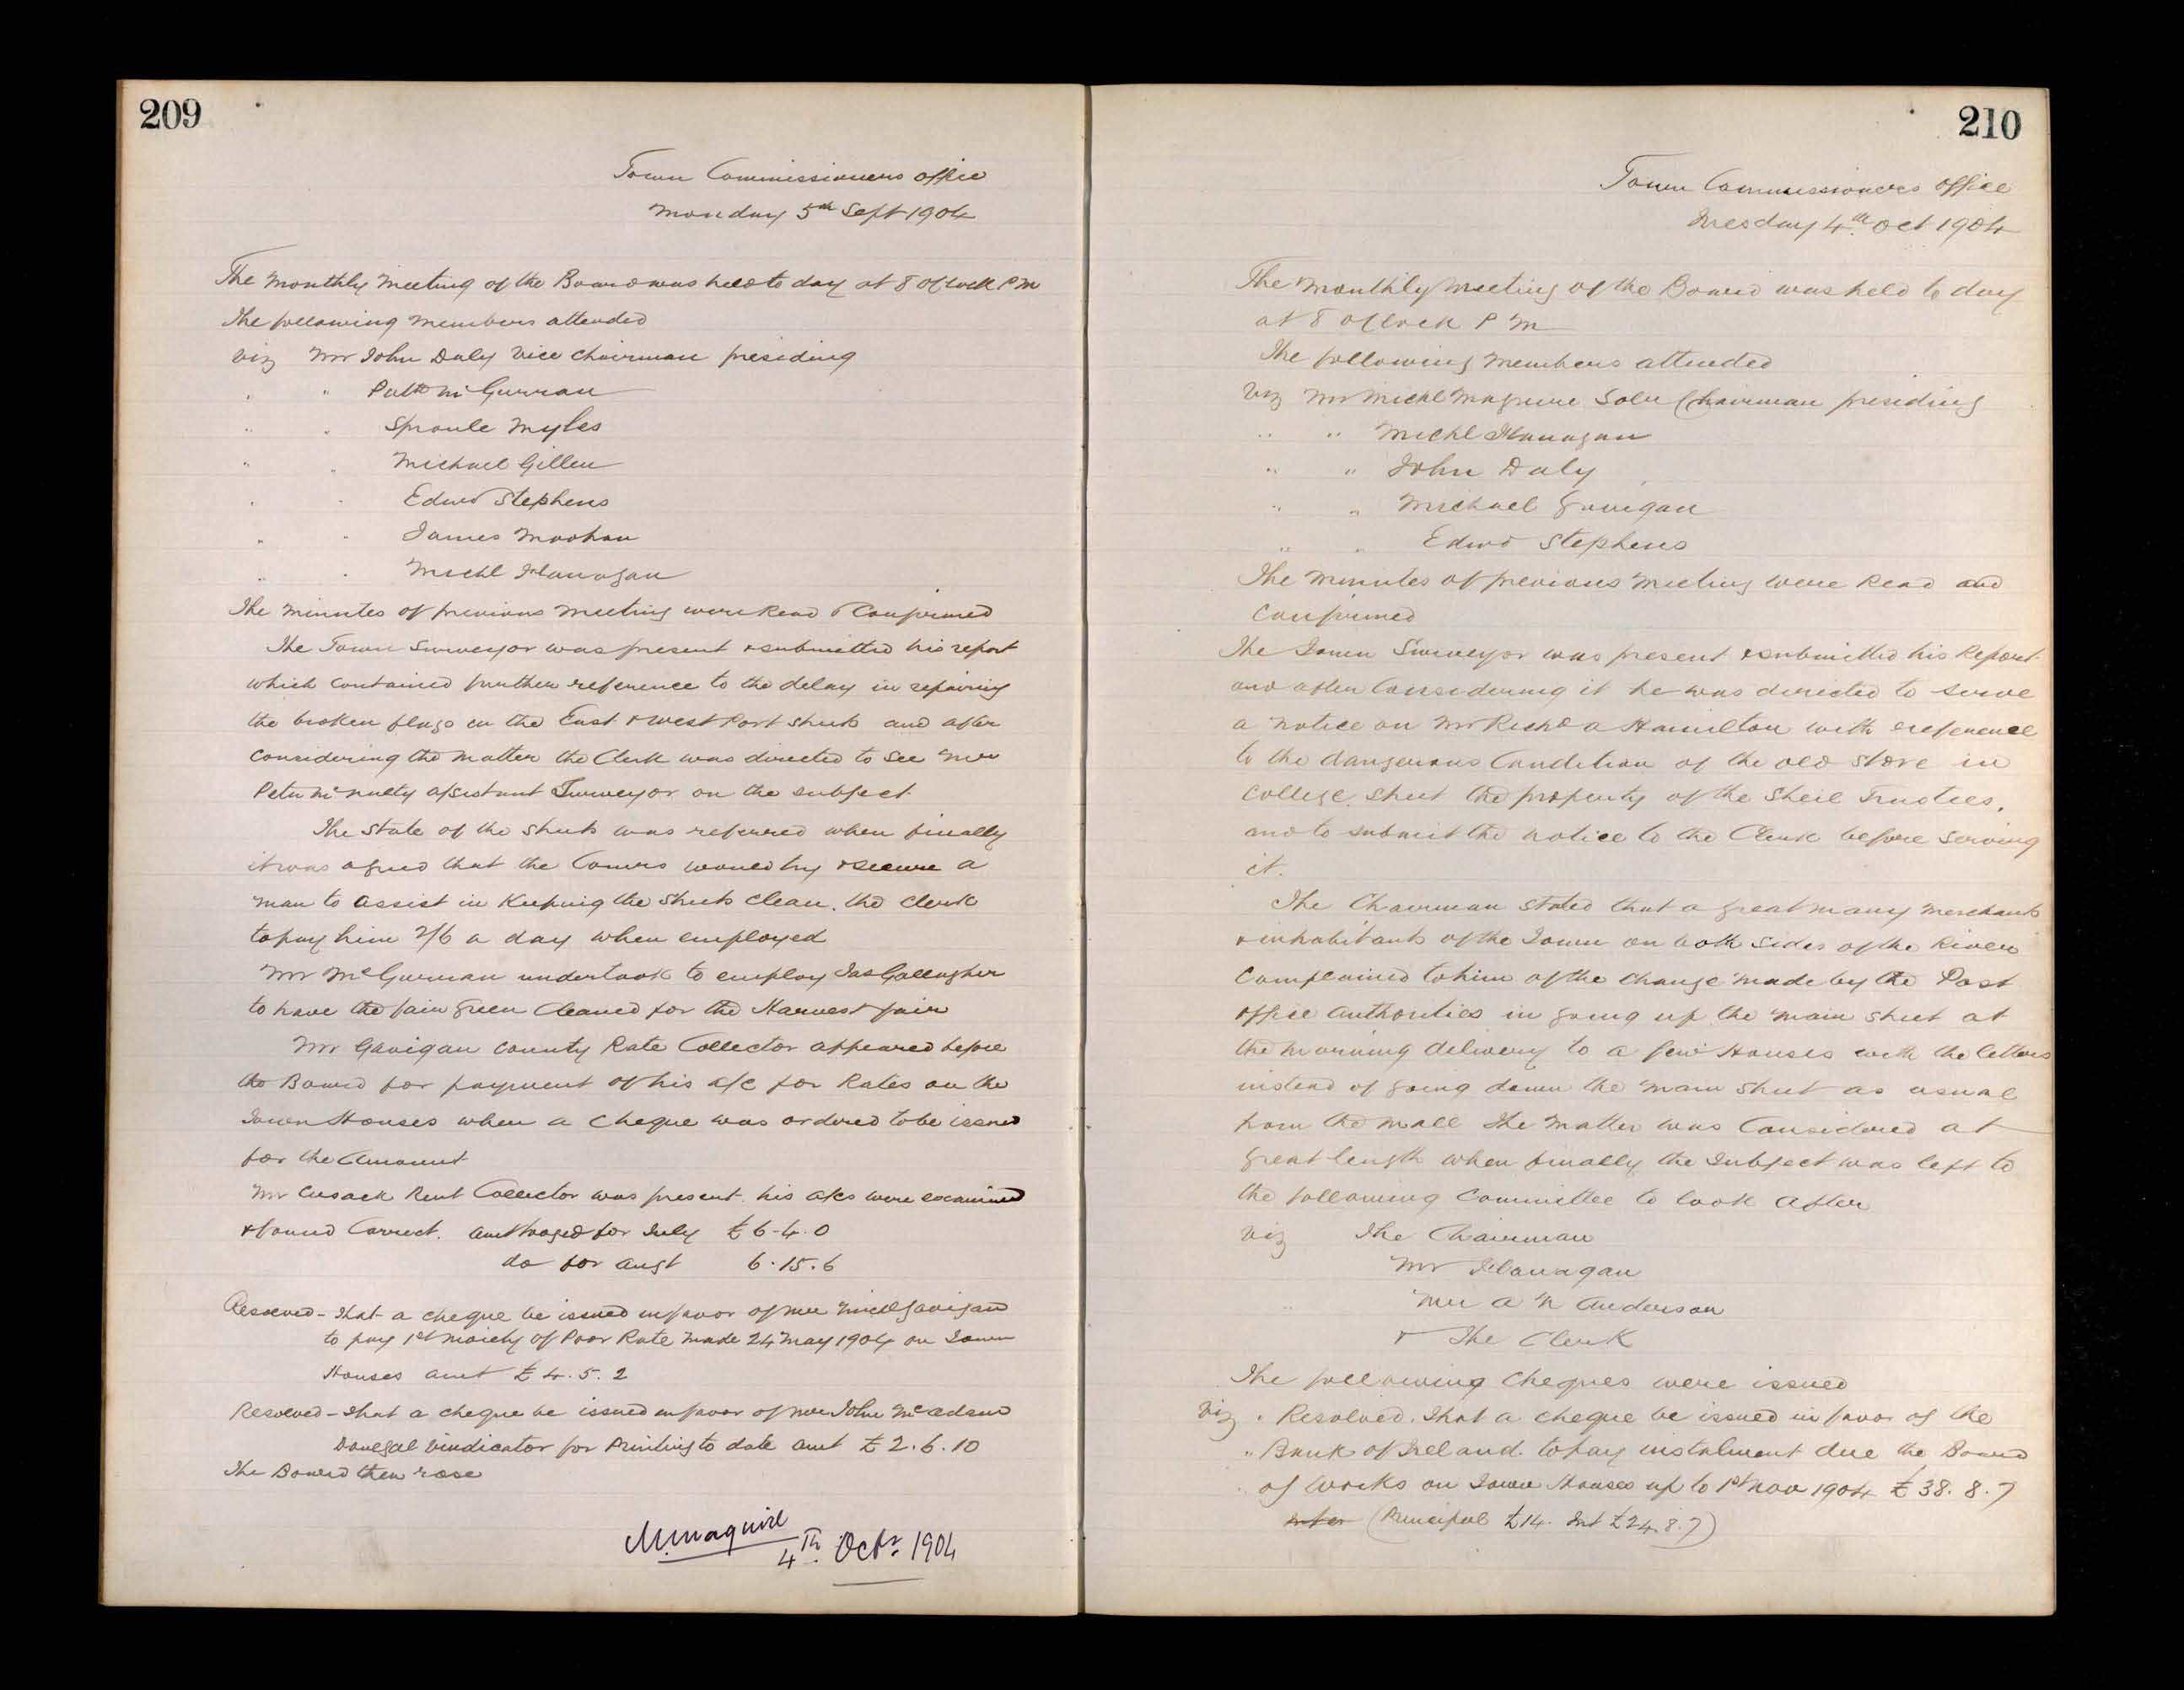 209
Town Commissioners office
Monday 5th Sept 1904
The Monthly Meeting of the Board was held to day at 8 O'Clock P M
The following Members attended
Viz Mr John Daly Vice Chairman presiding
" " Patk McGurran
" " Sproule Myles
" " Michael Gillen
" " Edwd Stephens
" " James Moohan
" " Michl Flanagan
The Minutes of previous Meeting were Read & Confirmed
The Town Surveyor was present & submitted his report
which contained further reference to the delay in repairing
the broken flags on the East & West Port Streets and after
Considering the Matter the Clerk was directed to See Mr
Peter McNulty assistant Surveyor on the subject.
The State of the Streets was referred when finally
it was agreed that the Comrs would try & secure a
man to assist in Keeping the Streets clean. the Clerk
to pay him 2/6 a day when employed
Mr McGurran undertook to employ Jas Gallagher
to have the fair Green Cleaned for the Harvest fair
Mr Gavigan County Rate Collector appeared before
the Board for payment of his a/c for Rates on the
Town Houses when a Cheque was ordered to be issued
for the Amount
Mr Cusack Rent Collector was present. his a/cs were examined
& found Correct. Amt lodged for July £6-4.0
do for Augt 6.15.6
Resolved - That a cheque be issued in favor of Mr Michl Gavigan
to pay 1st Moiety of Poor Rate made 24 May 1904 on Town
Houses amt £4.5.2
Resolved - That a cheque be issued in favor of Mr John McAdam
Donegal Vindicator for Printing to date amt £2.6.10
The Board then rose
M. Maguire
4th. Octr. 1904
210
Town Commissioners Office
Tuesday 4th Oct 1904
The Monthly Meeting of the Board was held to day
at 8 O'Clock P M
The following Members attended
Viz Mr Michl Maguire Solr Chairman presiding
" " Michl Flanagan
" " John Daly
" " Michael Gavigan
" " Edwd Stephens
The Minutes of previous Meeting were Read and
Confirmed
The Town Surveyor was present & submitted his Report
and after Considering it he was directed to serve
a Notice on Mr Richd A Hamilton with reference
to the dangerous Condition of the old Store in
College Street the property of the Sheil Trustees.
and to submit the notice to the Clerk before serving
it.
The Chairman stated that a great many Merchants
& inhabitants of the Town on both sides of the River
Complained to him of the Change made by the Post
office Authorities in going up the Main Street at
the Morning delivery to a few Houses with the letters
instead of going down the Main Street as usual
from the Mall The Matter was Considered at
great length when finally the Subject was left to
the following Committee to look After
Viz The Chairman
Mr Flanagan
" Mr A N Anderson
& The Clerk
The following Cheques were issued
Viz " Resolved. That a cheque be issued in favor of the
" Bank of Ireland. to pay instalment due the Board
" of Works on Town Houses up to 1st Nov 1904 £38.8.7
(Principal £14. Int £24.8.7)